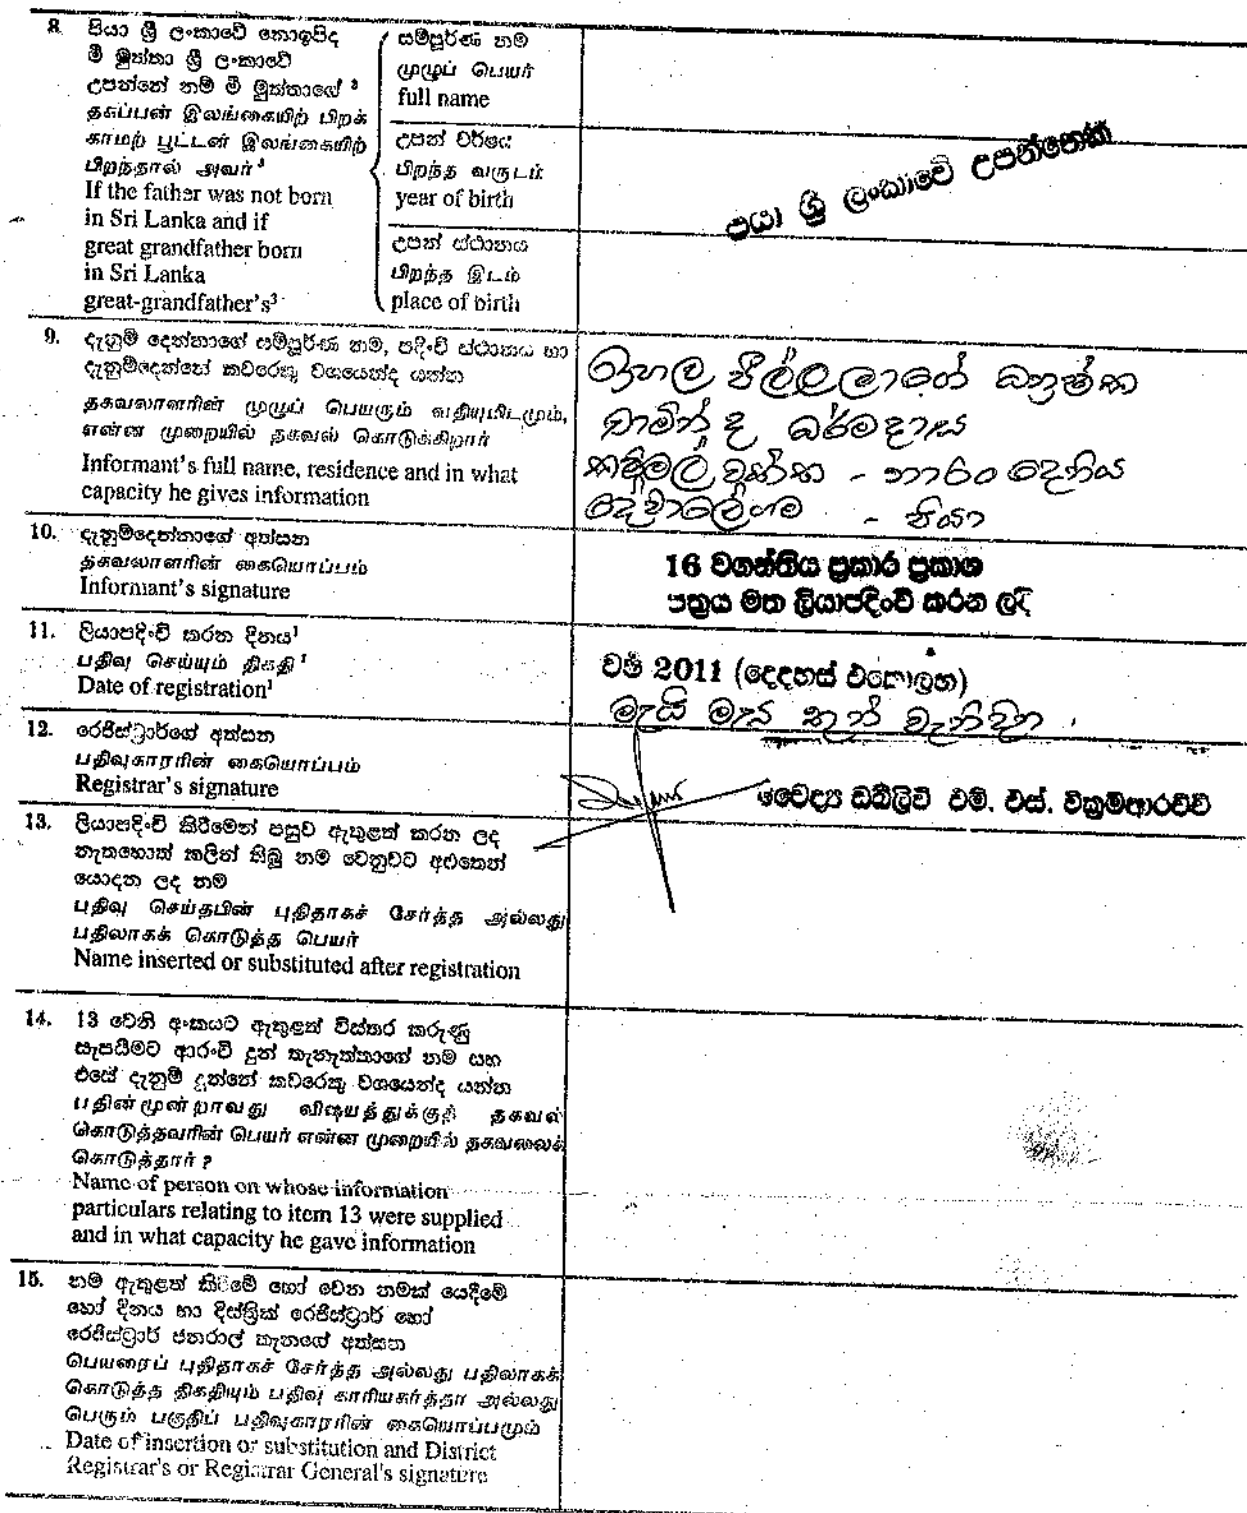 8. පියා ශ්‍රී ලංකාවේ නොඉපිද
මී මුත්තා ශ්‍රී ලංකාවේ
උපන්නේ නම් මී මුත්තාගේ ³
தகப்பன் இலங்கையிற் பிறக்
காமற் பூட்டன் இலங்கையிற்
பிறந்தால் அவர் ³
If the father was not born
in Sri Lanka and if
great grandfather born
in Sri Lanka
great-grandfather's³
සම්පූර්ණ නම
முழுப் பெயர்
full name
උපන් වර්ෂය
பிறந்த வருடம்
year of birth
උපන් ස්ථානය
பிறந்த இடம்
place of birth
පියා ශ්‍රී ලංකාවේ උපන්නෙකි
9. දැනුම් දෙන්නාගේ සම්පූර්ණ නම, පදිංචි ස්ථානය හා
දැනුම්දෙන්නේ කවරෙකු වශයෙන්ද යන්න
தகவலாளரின் முழுப் பெயரும் வதியுமிடமும்,
என்ன முறையில் தகவல் கொடுக்கிறார்
Informant's full name, residence and in what
capacity he gives information
ඉහල විල්ලලාගේ ධනුෂ්ක
චාමින්ද ධර්මදාස
කම්මල්වත්ත - නාරංදෙනිය
දේවාලේගම - පියා
10. දැනුම්දෙන්නාගේ අත්සන
தகவலாளரின் கையொப்பம்
Informant's signature
16 වගන්තිය ප්‍රකාර ප්‍රකාශ
පත්‍රය මත ලියාපදිංචි කරන ලදි
11. ලියාපදිංචි කරන දිනය¹
பதிவு செய்யும் திகதி ¹
Date of registration¹
වර්ෂ 2011 (දෙදහස් එකොලහ)
මැයි මස තුන් වැනිදින
12. රෙජිස්ට්‍රාර්ගේ අත්සන
பதிவுகாரரின் கையொப்பம்
Registrar's signature
වෛද්‍ය ඩබ්ලිව් එම්. එස්. වික්‍රමආරච්චි
13. ලියාපදිංචි කිරීමෙන් පසුව ඇතුළත් කරන ලද
නැතහොත් කලින් තිබූ නම වෙනුවට අළුතෙන්
යොදන ලද නම
பதிவு செய்தபின் புதிதாகச் சேர்த்த அல்லது
பதிலாகக் கொடுத்த பெயர்
Name inserted or substituted after registration
14. 13 වෙනි අංකයට ඇතුළත් විස්තර කරුණු
සැපයීමට ආරංචි දුන් තැනැත්තාගේ නම සහ
එසේ දැනුම් දුන්නේ කවරෙකු වශයෙන්ද යන්න
பதின்மூன்றாவது விஷயத்துக்குத் தகவல்
கொடுத்தவரின் பெயர் என்ன முறையில் தகவலைக்
கொடுத்தார் ?
Name of person on whose information
particulars relating to item 13 were supplied
and in what capacity he gave information
15. නම ඇතුළත් කිරීමේ හෝ වෙන නමක් යෙදීමේ
හෝ දිනය හා දිස්ත්‍රික් රෙජිස්ට්‍රාර් හෝ
රෙජිස්ට්‍රාර් ජනරාල් තැනගේ අත්සන
பெயரைப் புதிதாகச் சேர்த்த அல்லது பதிலாகக்
கொடுத்த திகதியும் பதிவு காரியகர்த்தா அல்லது
பெரும் பகுதிப் பதிவுகாரரின் கையொப்பமும்
Date of insertion or substitution and District
Registrar's or Registrar General's signature